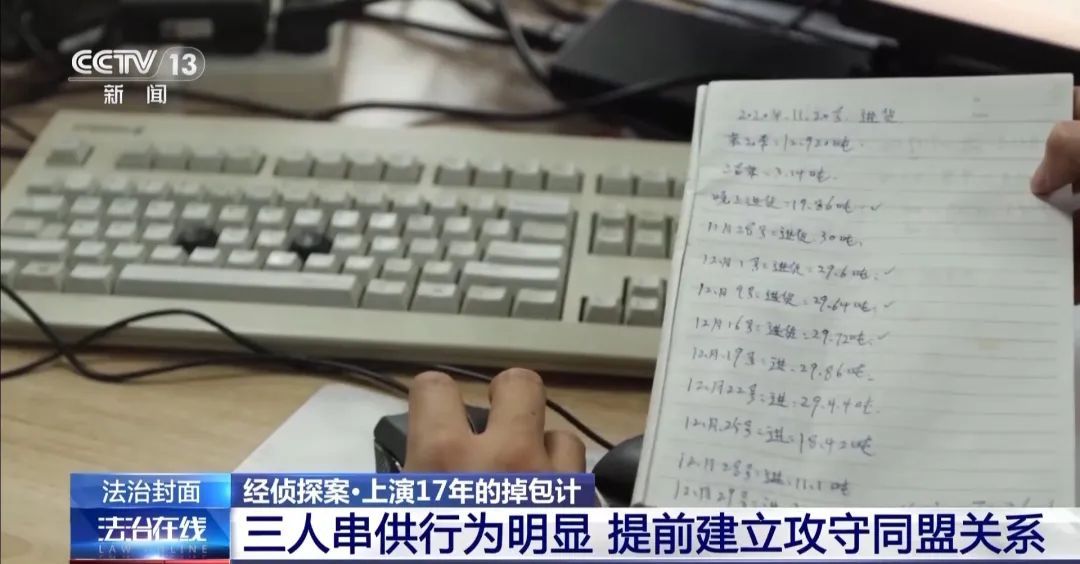 CCTV 13
新闻
2020年.11.20号.进货
12.920吨.
3.14吨.
晚上进货=19.86吨.✓
11月28号=进货.30吨.
12月1号=进货=29.6吨.✓
12月9号=进货=29.64吨.✓
12月16号=进货=29.72吨.✓
12月.19号=进.29.86吨.
12月22号=进=29.4.4吨.
12月.25号=进=18.42吨
12月28号=进=11.1吨
12月29号=进
法治封面
经侦探案·上演17年的掉包计
法治在线
LAW ONLINE
三人串供行为明显 提前建立攻守同盟关系